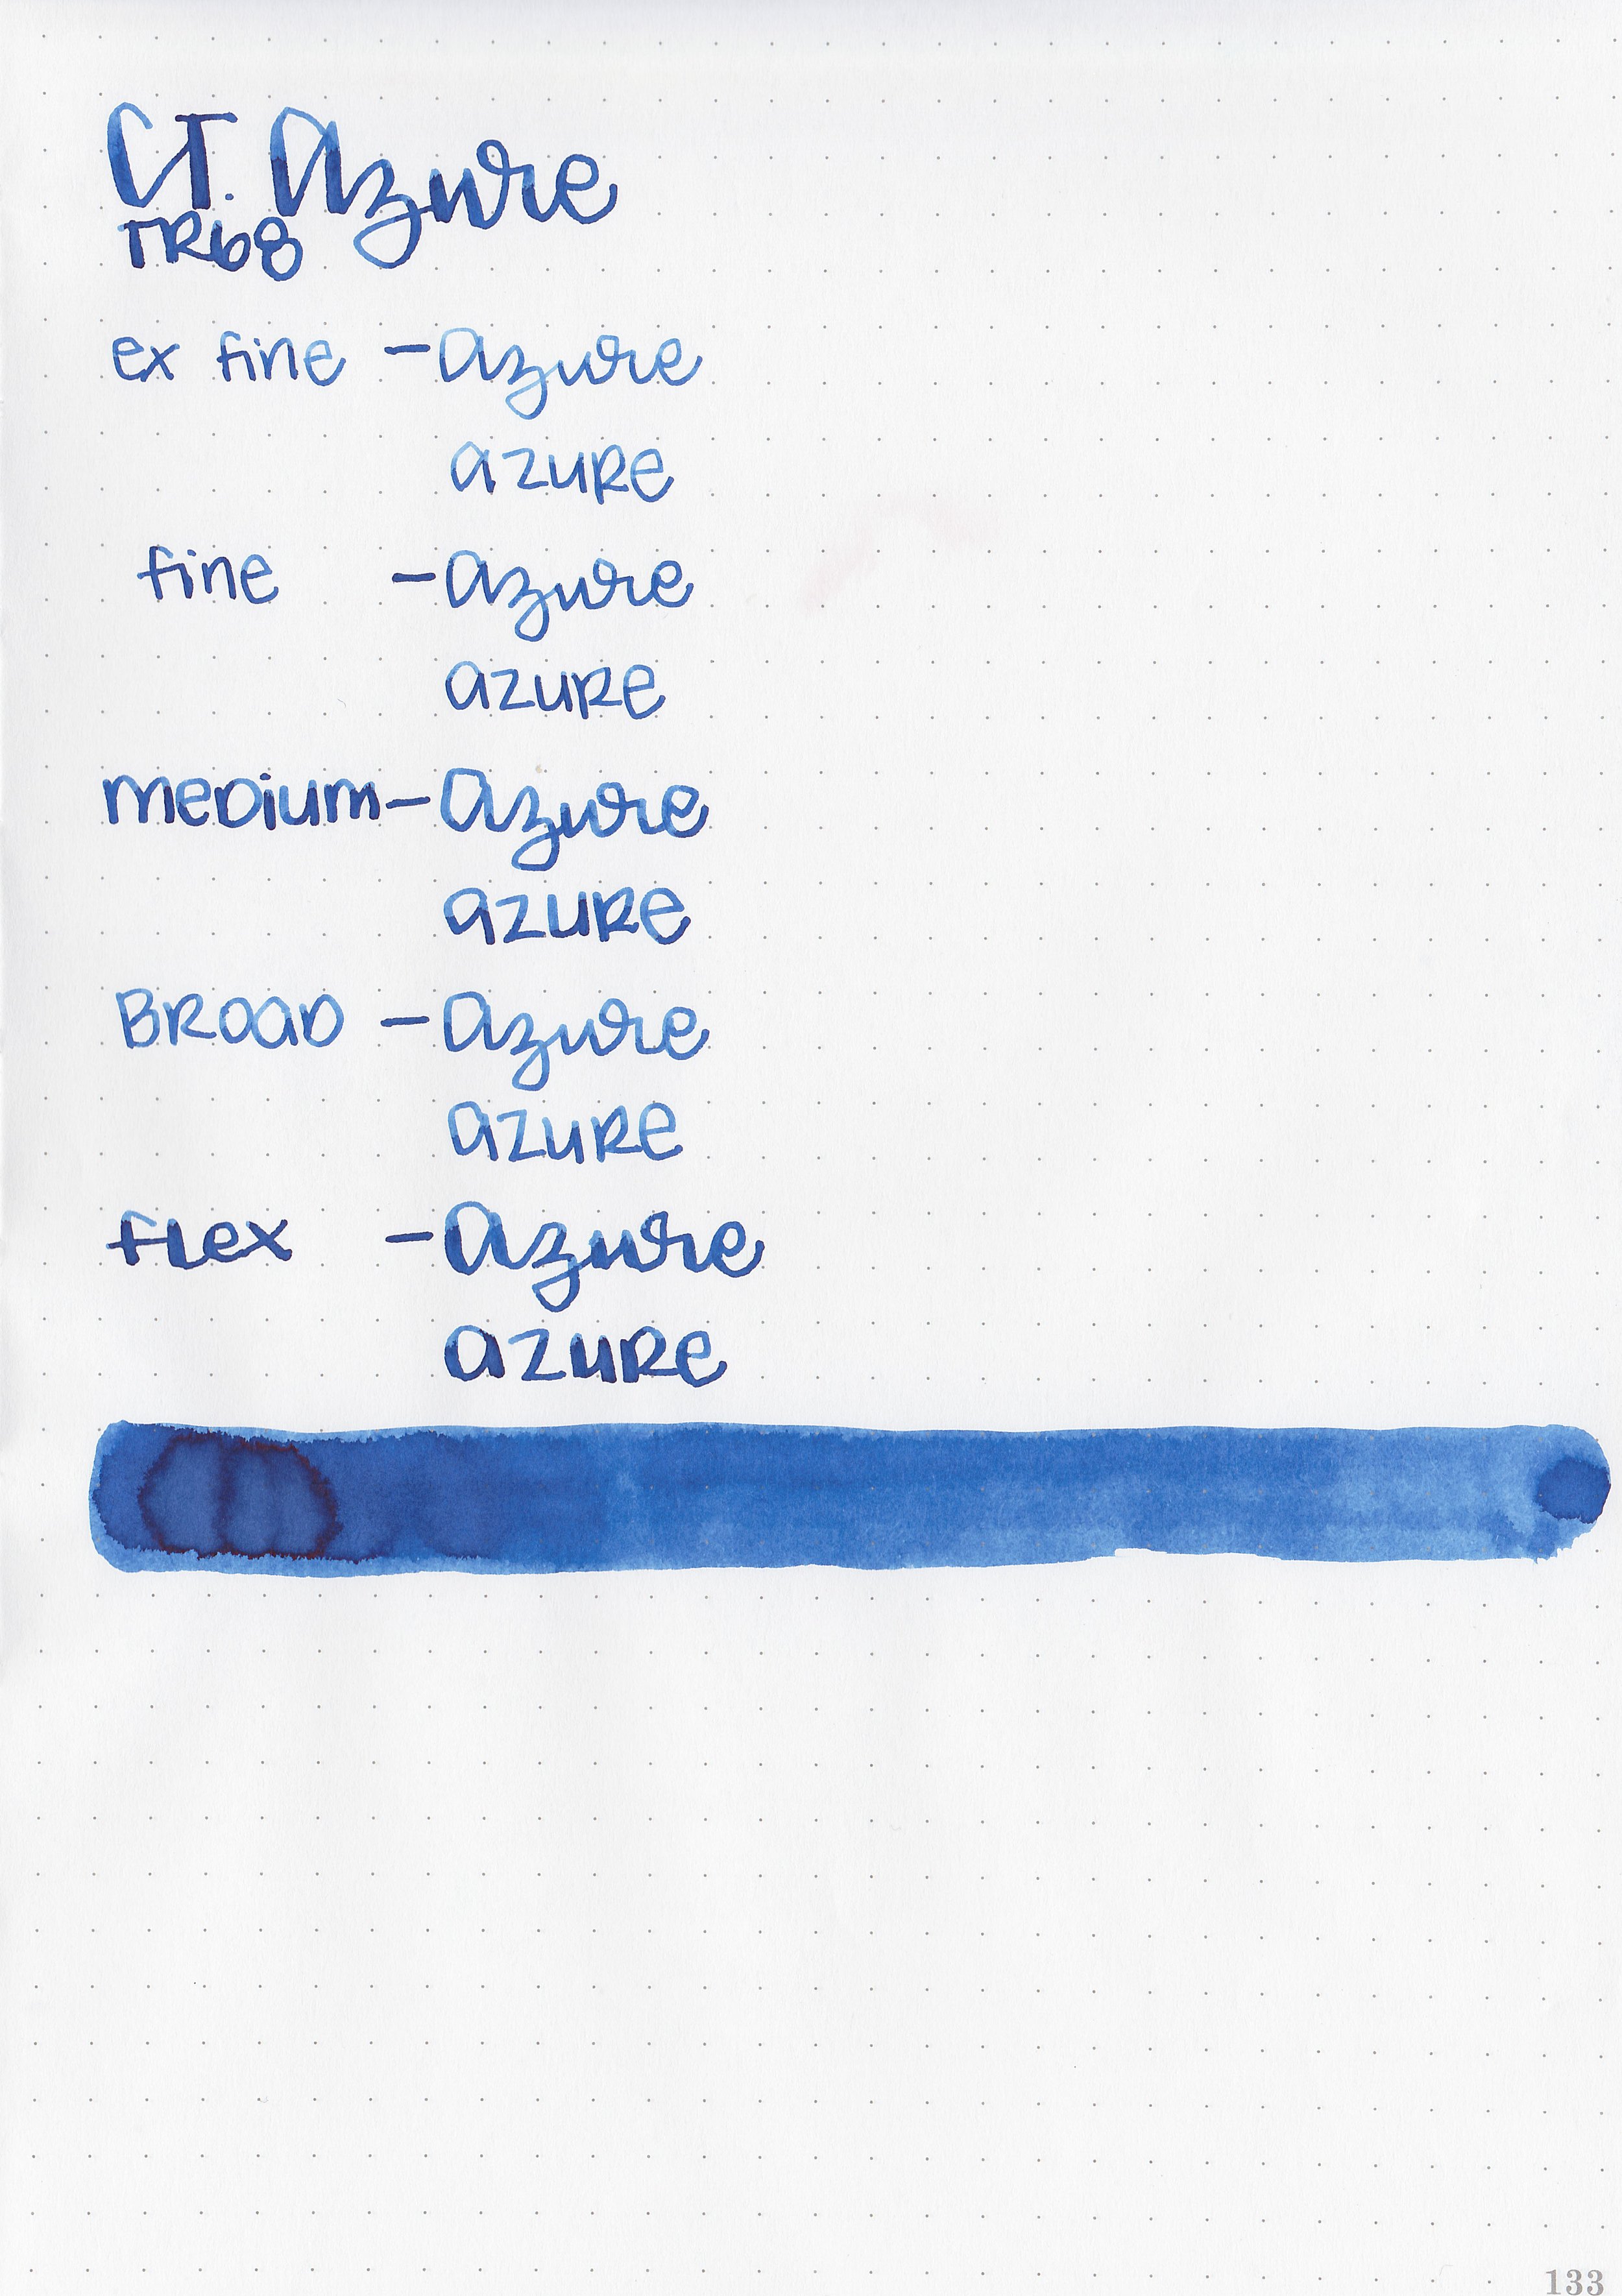 CT. Azure
TR68
ex fine - Azure
azure
fine - Azure
azure
medium - Azure
azure
Broad - Azure
azure
flex - Azure
azure
133